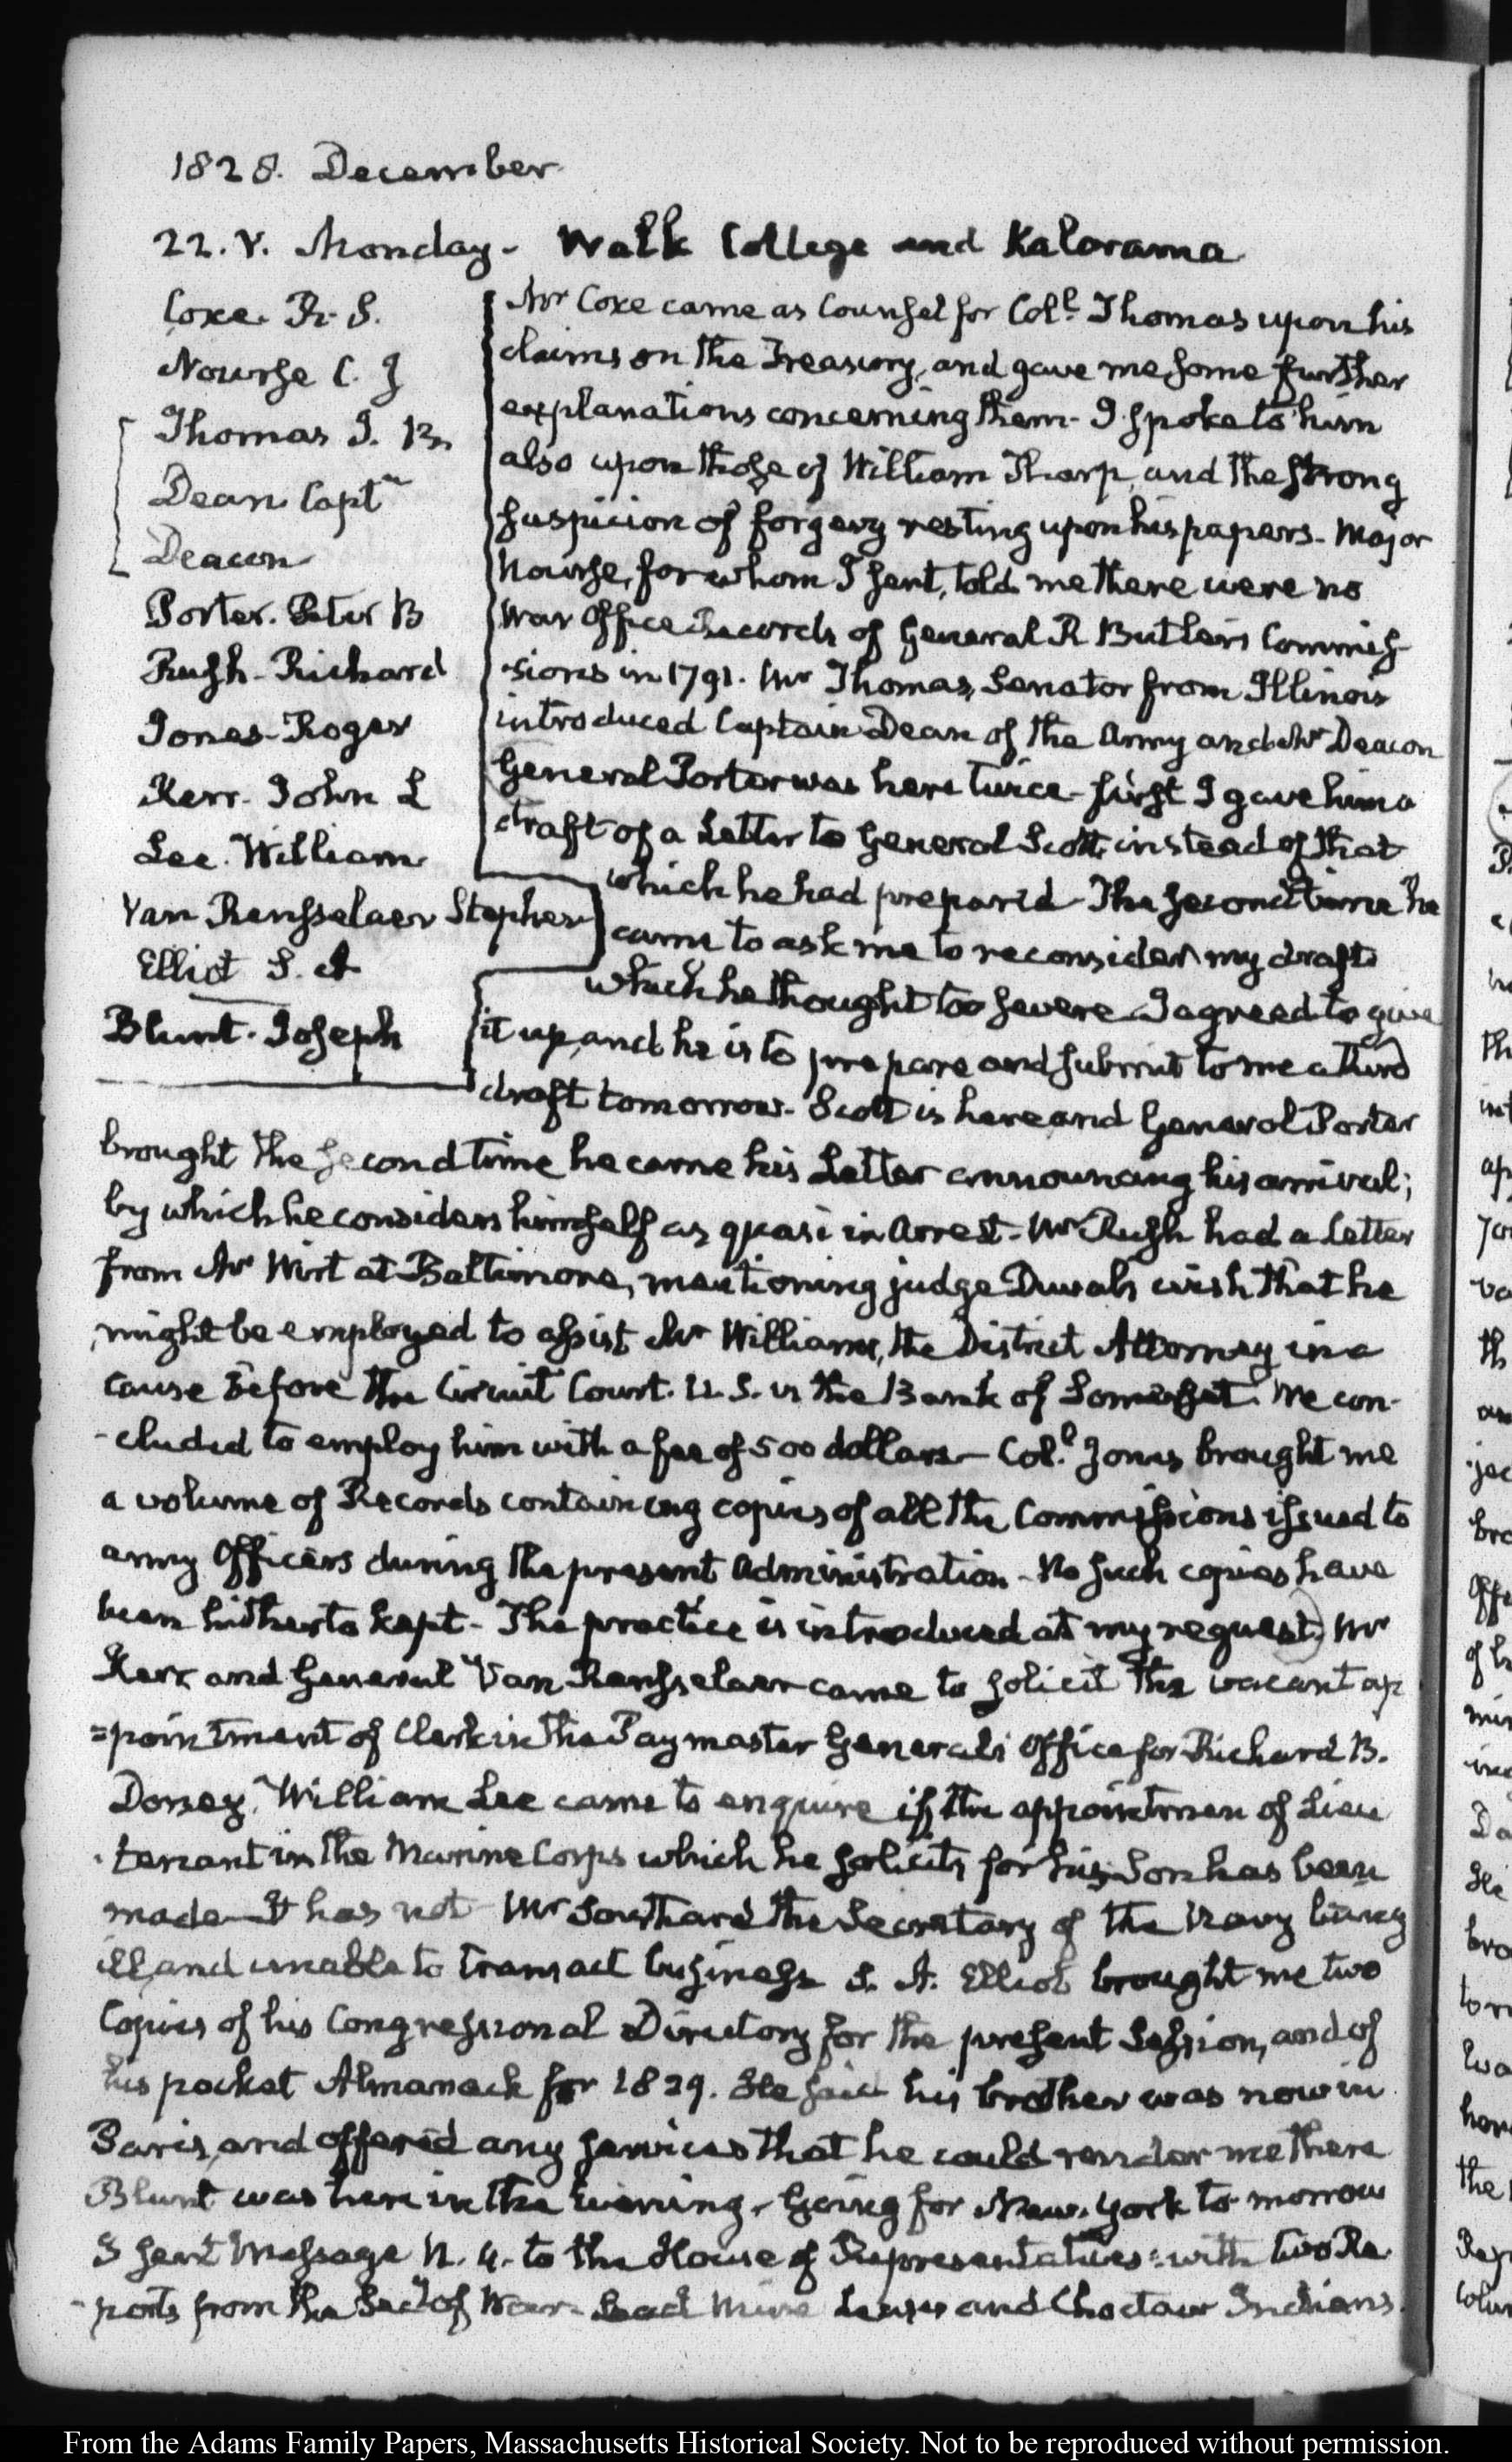 1828. December
22. V. Monday. Walk College and Kalorama
Coxe. R. S.
Nourse C. J
Thomas J. B.
Dean Capt.n
Deacon
Porter. Peter B
Rush. Richard
Jones. Roger
Kerr. John L
Lee. William
Van Rensselaer Stephen
Elliot S. A
Blunt. Joseph
Mr Coxe came as Counsel for Coll. Thomas upon his
claims on the Treasury, and gave me some further
explanations concerning them. I spoke to him
also upon those of William Tharp, and the strong
suspicion of forgery resting upon his papers. Major
Nourse, for whom I sent, told me there were no
War Office Records of General R Butler's Commis-
-sions in 1791. Mr Thomas, Senator from Illinois
introduced Captain Dean of the Army and Mr Deacon
General Porter was here twice - first I gave him a
draft of a Letter to General Scott, instead of that
which he had prepared. The second time he
came to ask me to reconsider my draft
which he thought too severe. I agreed to give
it up, and he is to prepare and submit to me a third
draft tomorrow. Scott is here and General Porter
brought the second time he came his Letter announcing his arrival;
by which he considers himself as quasi in Arrest. Mr Rush had a Letter
from Mr Wirt at Baltimore, mentioning judge Duval's wish that he
might be employed to assist Mr Williams, the District Attorney in a
cause before the Circuit Court. U. S. vs the Bank of Somerset. We con-
-cluded to employ him with a fee of 500 dollars - Col.l Jones brought me
a volume of Records containing copies of all the Commissions issued to
army Officers during the present Administration - No such copies have
been hitherto kept - The practice is introduced at my request. Mr
Kerr and General Van Rensselaer came to solicit the vacant ap
=pointment of Clerk in the Paymaster General's Office for Richard B.
Dorsey. William Lee came to enquire if the appointmen of Lieu
-tenant in the Marine Corps which he solicits for his Son has been
made - It has not - Mr Southard the Secretary of the Navy being
ill, and unable to transact business S. A. Elliot brought me two
Copies of his Congressional Directory for the present Session, and of
his pocket Almanack for 1829. He said his brother was now in
Paris, and offered any services that he could render me there
Blunt was here in the Evening. Going for New-York to-morrow
I sent Message N. 4. to the House of Representatives: with two Re
-ports from the Sec.y of War. Lead Mine Leases and Choctaw Indians.
From the Adams Family Papers, Massachusetts Historical Society. Not to be reproduced without permission.